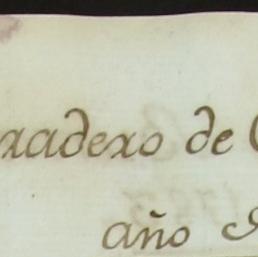 xadexo de
año